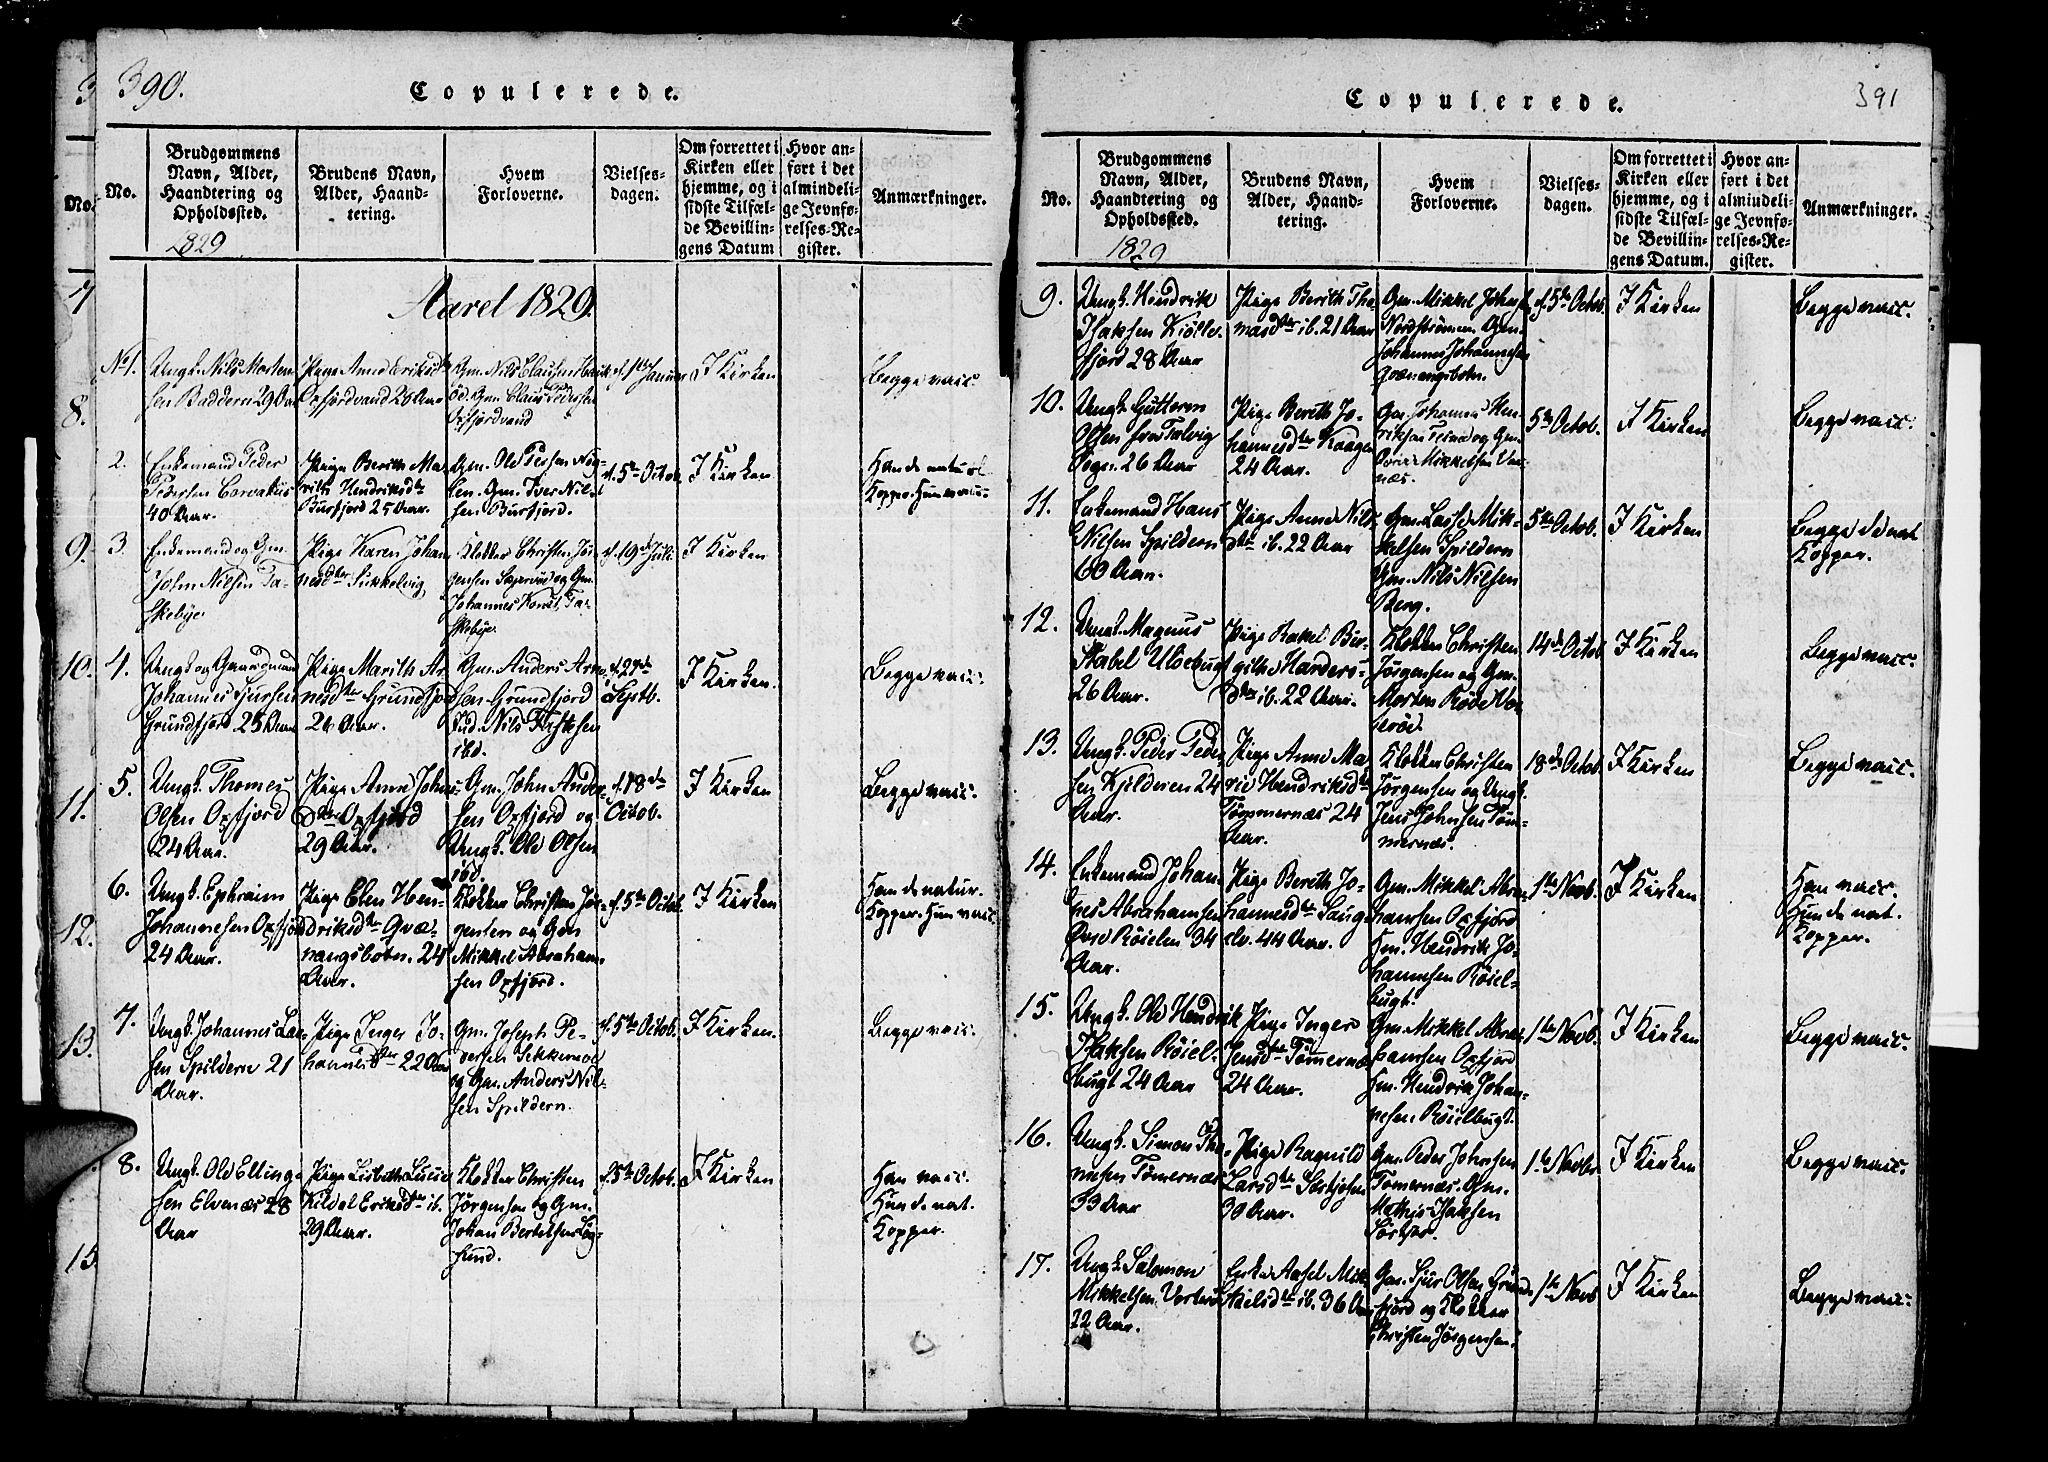 390.
Copulerede.
No.
Brudgommens
Navn, Alder,
Haandtering og
Opholdssted.
1829
Brudens Navn,
Alder, Haand-
tering.
Hvem
Forloverne.
Vielses-
dagen.
Om forrettet i
Kirken eller
hjemme, og i
sidste Tilfæl-
de Bevillin-
gens Datum
Hvor an-
ført i det
almindeli-
ge Jevnfø-
relses-Re-
gister.
Anmærkninger.
Aaret 1829.
No 1.
Ungk. Nils Morten-
sen Baddern 29 Aar
Pige Anne Eriksdtr
Oxfjordvand 26 Aar
Gm. Nils Clausen
Gm. Claus Pedersen
Oxfjordvand
1ste Januar
I Kirken
Begge vacc.
2.
Enkemand Peder
Pedersen
40 Aar.
Pige Berith Ma-
rith Hendriksdtr
Burfjord 25 Aar.
Gm. Iver Nil-
sen Burfjord.
5te Octob.
I Kirken
Han de naturl.
Kopper. Hun vacc.
3.
Enkemand og Gm.
John Nilsen Ta-
skebye
Pige Karen Johan-
nesdtr Sukkelvig
Klokker Christen Jør-
gensen Skjervøe og Gm.
Johannes Ta-
skebye.
19de Juli
I Kirken
4.
Ungk. og Gaardmand
Johannes Sjursen
Grundfjord 25 Aar
Pige Marith Ar-
nesdtr Grundfjord
26 Aar.
Gm. Anders Arne-
sen Grundfjord
Nils
ibd.
Septb.
I Kirken.
Begge vacc.
5.
Ungk. Thomes
Olsen Oxfjord
24 Aar.
Pige Anne Johns-
dtr Oxfjord
29 Aar.
Gm. John Ander-
sen Oxfjord og
Ungk. Ole Olsen
ibd.
18de
Octob.
I Kirken
Begge vacc.
6.
Ungk. Ephraim
Johannesen Oxfjord
24 Aar.
Pige Elen Hen-
driksdtr Qvæ-
nangsbotn. 24
Aar.
Klokker Christen Jør-
gensen og Gm
Mikkel Abraham-
sen Oxfjord.
5te Octob.
I Kirken
Han de natur.
Kopper. Hun vacc.
7.
Ungk. Johannes Las-
sen Spildern 21
Aar.
Pige Inger Jo-
hannesdtr 22 Aar
Gm. Joseph Pe-
dersen
og Gm. Anders Nil-
sen Spildern.
5te Octob.
I Kirken.
Begge vacc.
8.
Ungk. Ole Ellings-
sen Elvenæs 28
Aar
Pige Lisbeth Lucie
Kildal Eriksdtr ib.
29 Aar.
Klokker Christen
Jørgensen og Gm.
Johan Bertelsen Løg-
sund.
5te Octob.
I Kirken
Han vacc.
Hun de nat.
Kopper.
391
Copulerede.
No.
Brudgommens
Navn, Alder,
Haandtering og
Opholdssted.
1829
Brudens Navn,
Alder, Haand-
tering.
Hvem
Forloverne.
Vielses-
dagen.
Om forrettet i
Kirken eller
hjemme, og i
sidste Tilfæl-
de Bevillin-
gens Datum.
Hvor an-
ført i det
almindeli-
ge Jevnfø-
relses-Re-
gister.
Anmærkninger.
9.
Ungk. Hendrik
Isaksen Kiølle-
fjord 28 Aar
Pige Berith Tho-
masdtr ib. 21 Aar
Gm. Mikkel Johns.
Nordstrømmen Gm.
Johannes Johannesen
Qvænangsbotn.
5te Octob.
I Kirken
Begge vacc.
10.
Ungk. Guttorm
Olsen fra Talvig
Sogn. 26 Aar
Pige Berith Jo-
hannesdtr Kaagen
24 Aar.
Gm. Johannes Hen-
riksen og Gm.
Mikkelsen
5te Octob.
I Kirken
Begge vacc.
11.
Enkemand Hans
Nilsen Spildern
60 Aar.
Pige Anne Nils-
dtr ib. 22 Aar
Gm. Lasse Mik-
kelsen Spildern
Gm. Nils Nilsen
Berg.
5te Octob.
I Kirken
Begge de nat
Kopper.
12.
Ungk. Magnus
Stabel Ulsebugt
26 Aar.
Pige Rakel Bir-
githe Harders-
dtr ib. 22 Aar.
Klokker Christen
Jørgensen og Gm.
Morten Røde Vor-
terøe.
14de Octob
I Kirken
Begge vacc.
13.
Ungk. Peder Peder-
sen Kjilderen 24
Aar.
Pige Anne Ma-
rie Hendriksdtr
Tømmernæs 24
Aar.
Klokker Christen
Jørgensen og Ungk.
Jens Johnsen Tøm-
mernæs.
18de Octob.
I Kirken
Begge vacc.
14.
Enkemand Johan-
nes Abrahamsen
Øvre Røielen 34
Aar.
Pige Berith Jo-
hannesdtr Saug-
elv. 44 Aar.
Gm. Mikkel Abra-
hamsen Oxfjord
Gm. Hendrik Jo-
hannesen Røiel-
bugt.
1ste Novb.
I Kirken
Han vacc.
Hun de nat.
Kopper.
15.
Ungk. Ole Hendrik
Isaksen Røiel-
bugt 24 Aar
Pige Inger
Jensdtr Tømernæs
24 Aar.
Gm. Mikkel Abra-
hamsen Oxfjord
Gm. Hendrik Johan-
nesen Røielbugt.
1ste Novb.
I Kirken
Begge vacc.
16.
Ungk. Simon Tho-
mesen Tømernæs
33 Aar
Pige Ragnild
Larsdtr Sørkjosen
30 Aar.
Gm. Peder Johnsen
Tømernæs. Gm.
Mathis Isaksen
Sørkjos.
1ste Novbr.
I Kirken
Begge vacc.
17.
Ungk. Salomon
Mikkelsen Vorterøe
22 Aar.
Enke Axsel Mik-
kelsdtr ib. 36 Aar
Gm. Sjur Olsen Grund-
fjord og Klokker
Christen Jørgensen.
1ste Novb
I Kirken
Begge vacc.